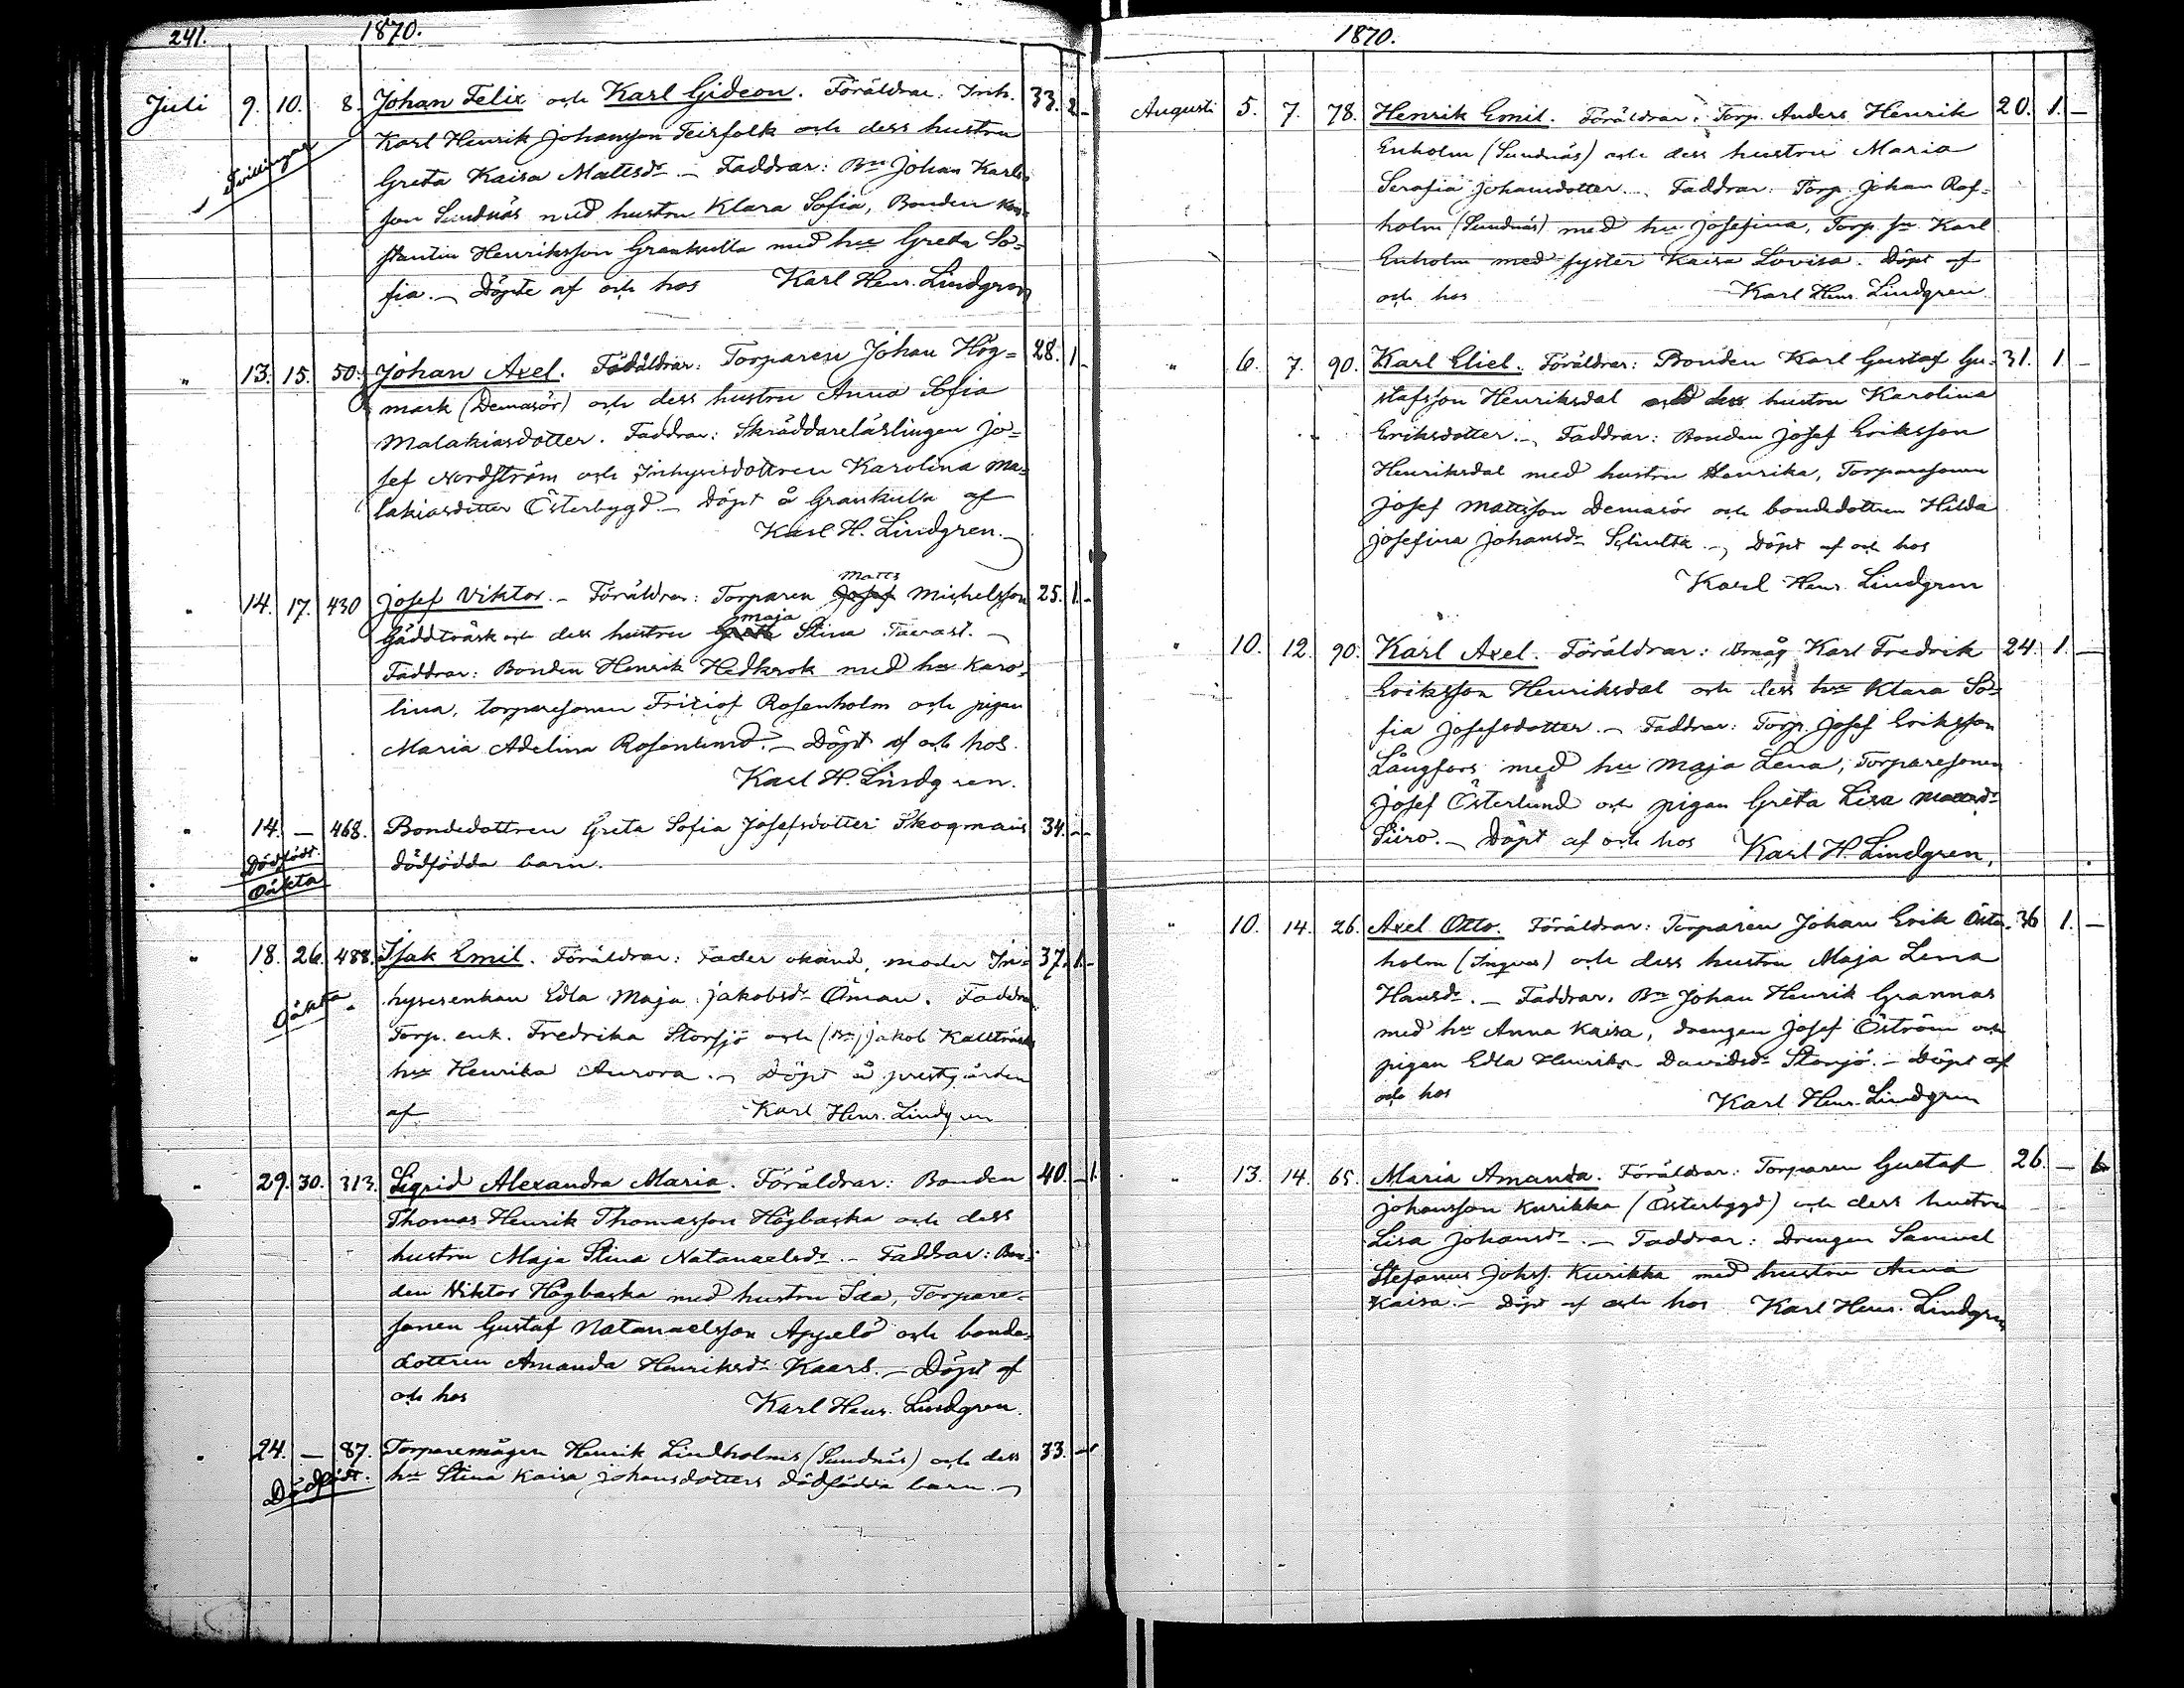 241. 1870.
Juli 9. 10. 8. Johan Felix och Karl Gideon. Föräldrar: Inh. 33. 2 -
Tvillingar Karl Henrik Johansson Teirfolk och dess hustru
Greta Kaisa Mattsdr. - Faddrar: Bn Johan Karls-
son Sundnäs med hustru Klara Sofia, Bonden Kon-
stantin Henriksson Grankulla med hu Greta So-
fia. - Döpte af och hos Karl Henr. Lindgren
" 13. 15. 50. Johan Axel. Föräldrar: Torparen Johan Hög= 28. 1 -
mark (Demasör) och dess hustru Anna Sofia
Malakiasdotter. Faddrar: Skräddarelärlingen Jo=
sef Nordström och Inhysesdottren Karolina Ma=
lakiasdotter Österbygd. - Döpt å Grankulla af
Karl H. Lindgren. -
Matts
" 14. 17. 430 Josef Viktor. - Föräldrar: Torparen Josef Michelsson 25. 1. -
maja
Gäddträsk och dess hustru Greta Stina Tavast. -
Faddrar: Bonden Henrik Hedkrok med hu Karo-
lina, torparesonen Fritiof Rosenholm och pigan
Maria Adelina Rosenlund. - Döpt af och hos.
Karl H. Lindgren.
" 14. - 468. Bondedottren Greta Sofia Josefsdotter Skogmans 34. - -
Dödfödt. dödfödda barn.
Oäkta
" 18. 26. 488. Isak Emil. Föräldrar: Fader okänd, moder In= 37. 1. -
Oäkta hysesenkan Edla Maja Jakobsdr Öman. Faddrar
Torp. enk. Fredrika Storsjö och (Bn) Jakob Kallträsks
hu Henrika Aurora. - Döpt å prestgården
af Karl Henr. Lindgren
" 29. 30. 313. Sigrid Alexandra Maria. Föräldrar: Bonden 40. - 1.
Thomas Henrik Thomasson Högbacka och dess
hustru Maja Stina Natanaelsdr. - Faddrar: Bon-
den Viktor Högbacka med hustru Ida, Torpare-
sonen Gustaf Natanaelsson Appelö och bonde-
dottren Amanda Henriksdr Kaars. - Döpt af
och hos Karl Henr. Lindgren.
" 24. - 87. Torparemågen Henrik Lindholms (Sundnäs) och dess 33. -
Dödfödt. hu Stina Kaisa Johansdotters dödfödda barn. -
1870.
Augusti 5. 7. 78. Henrik Emil. Föräldrar: Torp. Anders Henrik 20. 1. -
Enholm (Sundnäs) och dess hustru Maria
Serafia Johansdotter. Faddrar: Torp. Johan Ros-
holm (Sundnäs) med hu Josefina, Torp. sn Karl
Enholm med syster Kaisa Lovisa. Döpt af
och hos Karl Henr. Lindgren
" 6. 7. 90. Karl Eliel. Föräldrar: Bonden Karl Gustaf Gu- 31. 1. -
stafsson Henriksdal och dess hustru Karolina
Eriksdotter. - Faddrar: Bonden Josef Eriksson
Henriksdal med hustru Henrika, Torparesonen
Josef Mattsson Demasör och bondedottren Hilda
Josefina Johansdr Schultz. - Döpt af och hos
Karl Henr. Lindgren
" 10. 12. 90. Karl Axel. Föräldrar: Bmåg Karl Fredrik 24. 1. -
Eriksson Henriksdal och dess hu Klara So=
fia Josefsdotter. - Faddrar: Torp. Josef Eriksson
Långfors med hu Maja Lena, Torparesonen
Josef Österlund och pigan Greta Lisa Mattsdr
Siiro. - Döpt af och hos Karl H. Lindgren.
" 10. 14. 26. Axel Otto. Föräldrar: Torparen Johan Erik Öster- 36 1. -
holm (Ingves) och dess hustru Maja Lena
Hansdr. - Faddrar: Bn Johan Henrik Grannas
med hu Anna Kaisa, drengen Josef Öström och
pigan Edla Henrika Davidsdr Storsjö. - Döpt af
och hos Karl Henr. Lindgren
" 13. 14. 65. Maria Amanda. Föräldrar: Torparen Gustaf 26. - 1.
Johansson Kurikka (Österbygd) och dess hustru
Lisa Johansdr. - Faddrar: Drengen Samuel
Stefanus Johss. Kurikka med hustru Anna
Kaisa. - Döpt af och hos Karl Henr. Lindgren